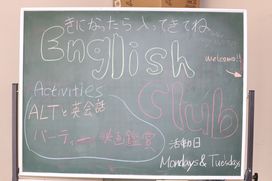 きになったら入ってきてね
English
welcome!!
Club
Activities
ALTと英会話
パーティー 映画鑑賞
活動日
Mondays & Tuesdays